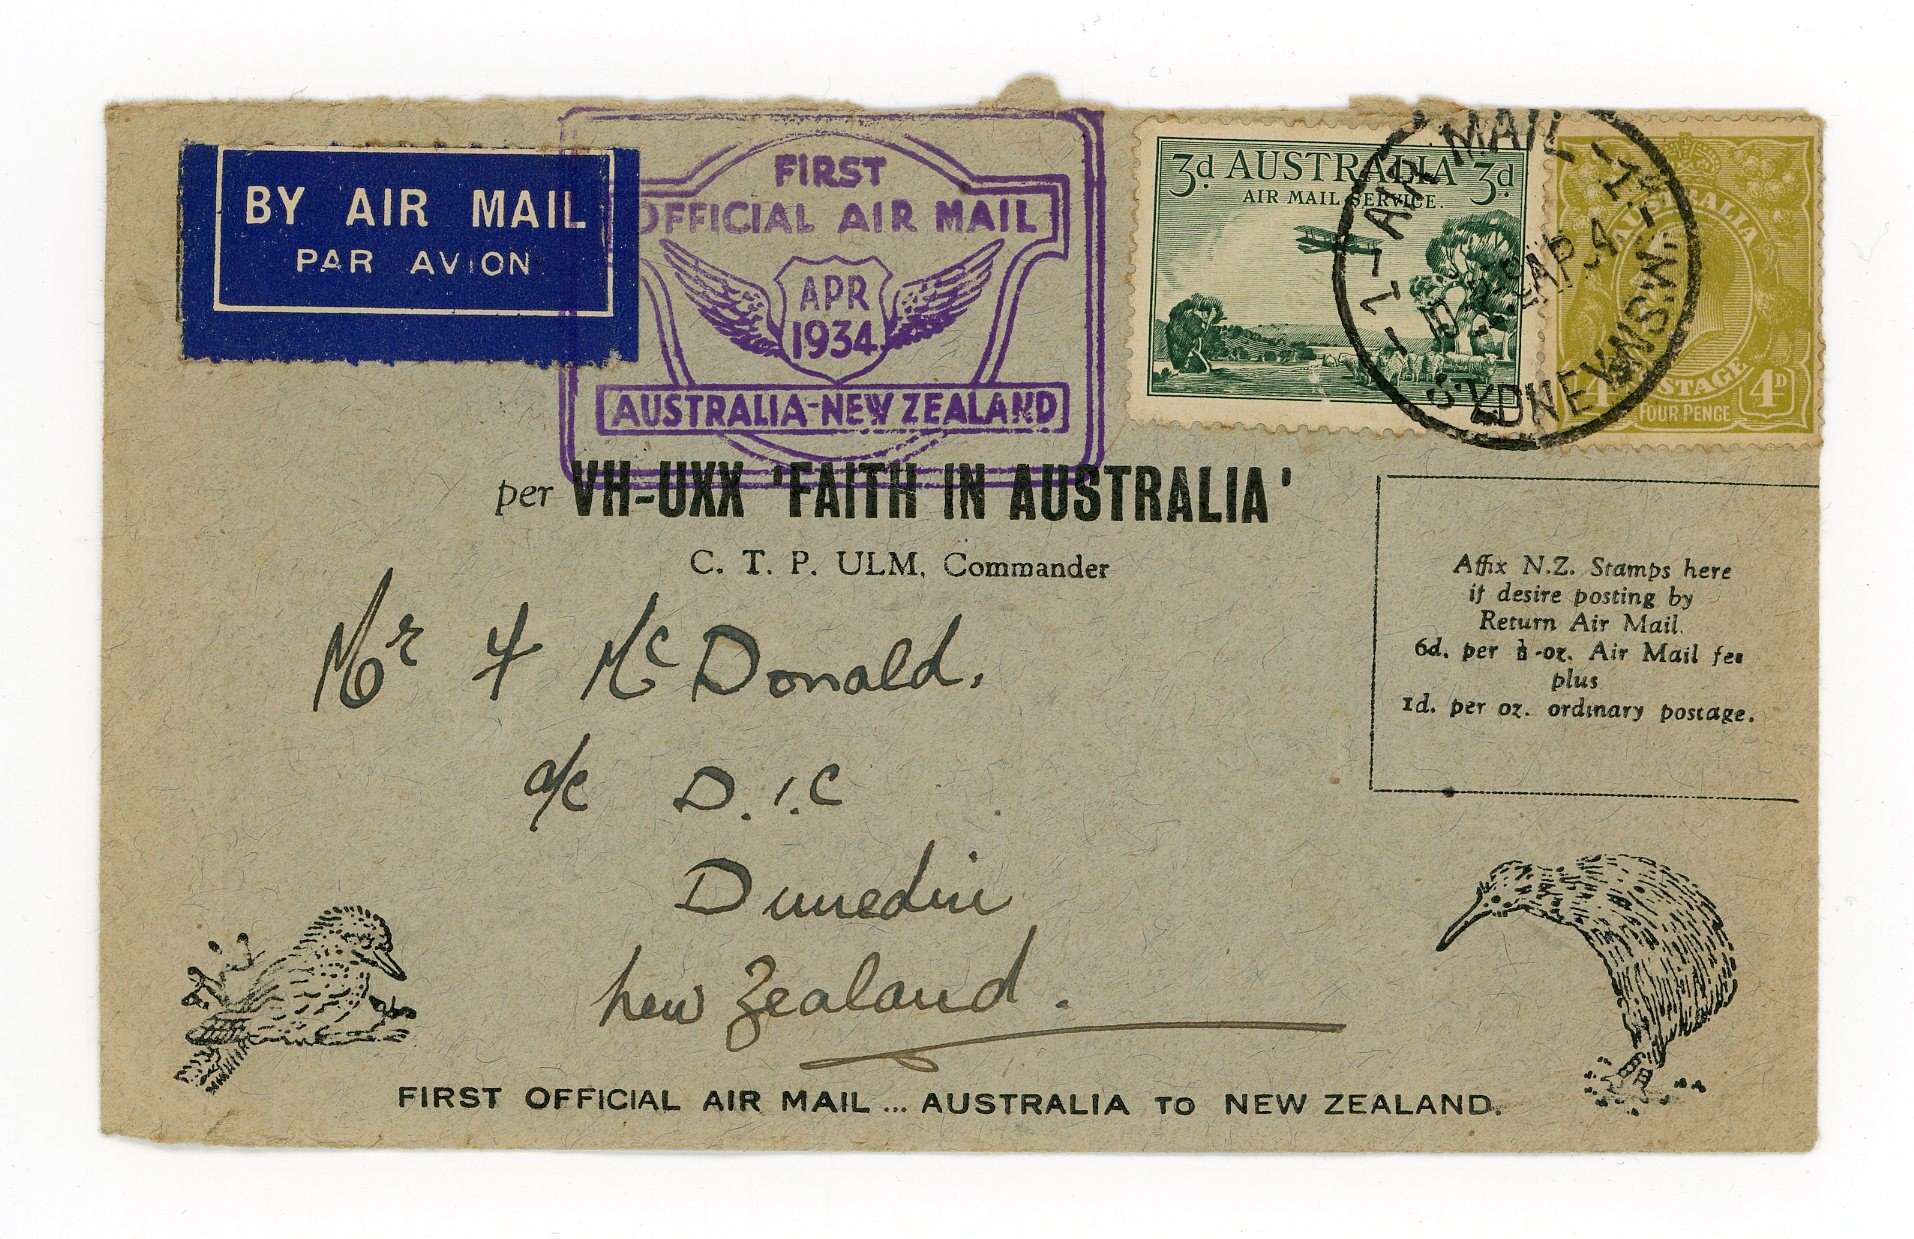 BY AIR MAIL
PAR AVION
FIRST
OFFICIAL AIR MAIL
APR
1934
AUSTRALIA-NEW ZEALAND
3d AUSTRALIA 3d
AIR MAIL SERVICE.
AIR MAIL
SYDNEY N.S.W
AUSTRALIA
POSTAGE
4 4D
FOUR PENCE
per VH-UXX 'FAITH IN AUSTRALIA'
C. T. P. ULM, Commander
Affix N.Z. Stamps here
if desire posting by
Return Air Mail.
6d. per ½-oz. Air Mail fee
plus
1d. per oz. ordinary postage.
Mr F McDonald.
c/o D.I.C
Dunedin
New Zealand.
FIRST OFFICIAL AIR MAIL ... AUSTRALIA TO NEW ZEALAND.